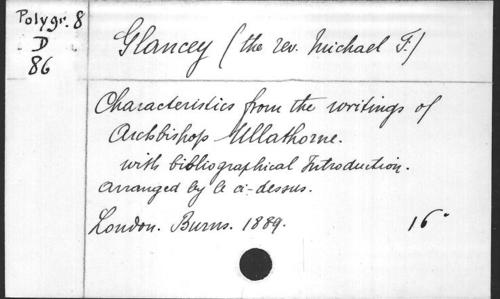 Polygr. 8
D
86
Glancey (the rev. Michael F.)
Characteristics from the writings of
Archbishop Ullathorne.
with bibliographical Introduction.
arranged by le ci-dessus.
London. Burns. 1889. 16°